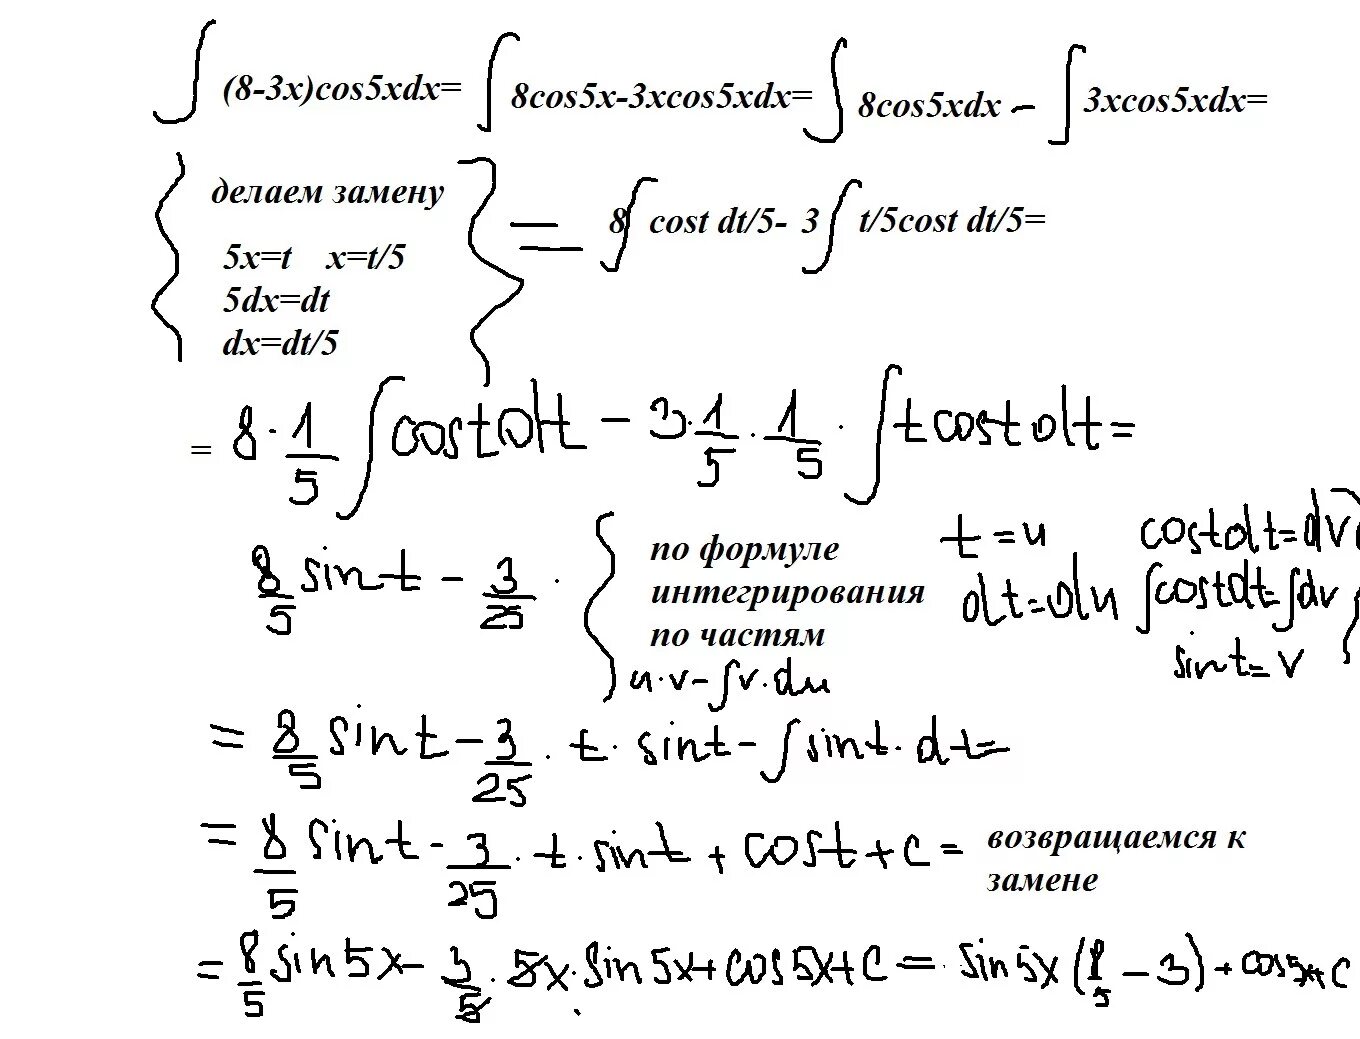 ∫(8-3x)cos5xdx= ∫8cos5x-3xcos5xdx= ∫8cos5xdx - ∫3xcos5xdx=
делаем замену
5x=t x=t/5
5dx=dt
dx=dt/5
= 8∫cost dt/5- 3∫t/5cost dt/5=
= 8·1/5∫costdt - 3·1/5·1/5·∫tcostdt=
8/5 sint - 3/25 ·
по формуле
интегрирования
по частям
u·v-∫v·du
t=u costdt=dv
dt=du ∫costdt=∫dv
sint=v
= 8/5 sint - 3/25 · t · sint - ∫sint·dt=
= 8/5 sint - 3/25 · t · sint + cost + c =
возвращаемся к
замене
= 8/5 sin5x - 3/5 · 5x · sin5x + cos5x + c = sin5x(8/5 - 3) + cos5x + c